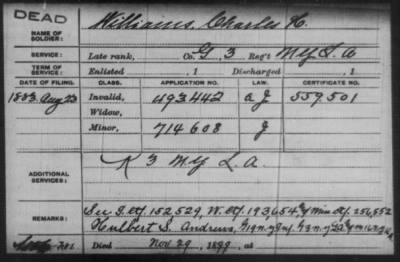 DEAD
NAME OF SOLDIER: Williams, Charles H.
SERVICE: Late rank, Co. G, 3 Reg't N.Y. L. A.
TERM OF SERVICE: Enlisted , 1 Discharged , 1
DATE OF FILING. CLASS. APPLICATION NO. LAW. CERTIFICATE NO.
1883. Aug 23 Invalid, 493442 a J 559501
Widow,
Minor, 714608 J
ADDITIONAL SERVICES: K 3 N.Y. L. A.
REMARKS: See I. ctf. 152,529, W. ctf. 193654 & Min. ctf. 256,552
Hulbert S. Andrews, G 19 N.Y. Inf.
Died Nov. 29, 1899, at